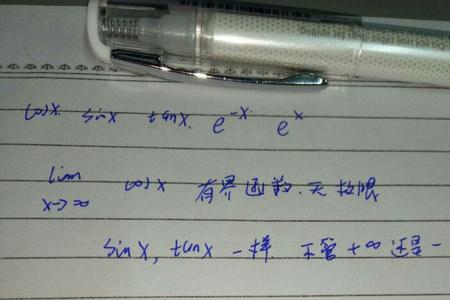 cosx. sinx tanx. e^-x. e^x
lim x→∞ cosx 有界函数.无极限
sinx, tanx 一样 不管+∞还是-